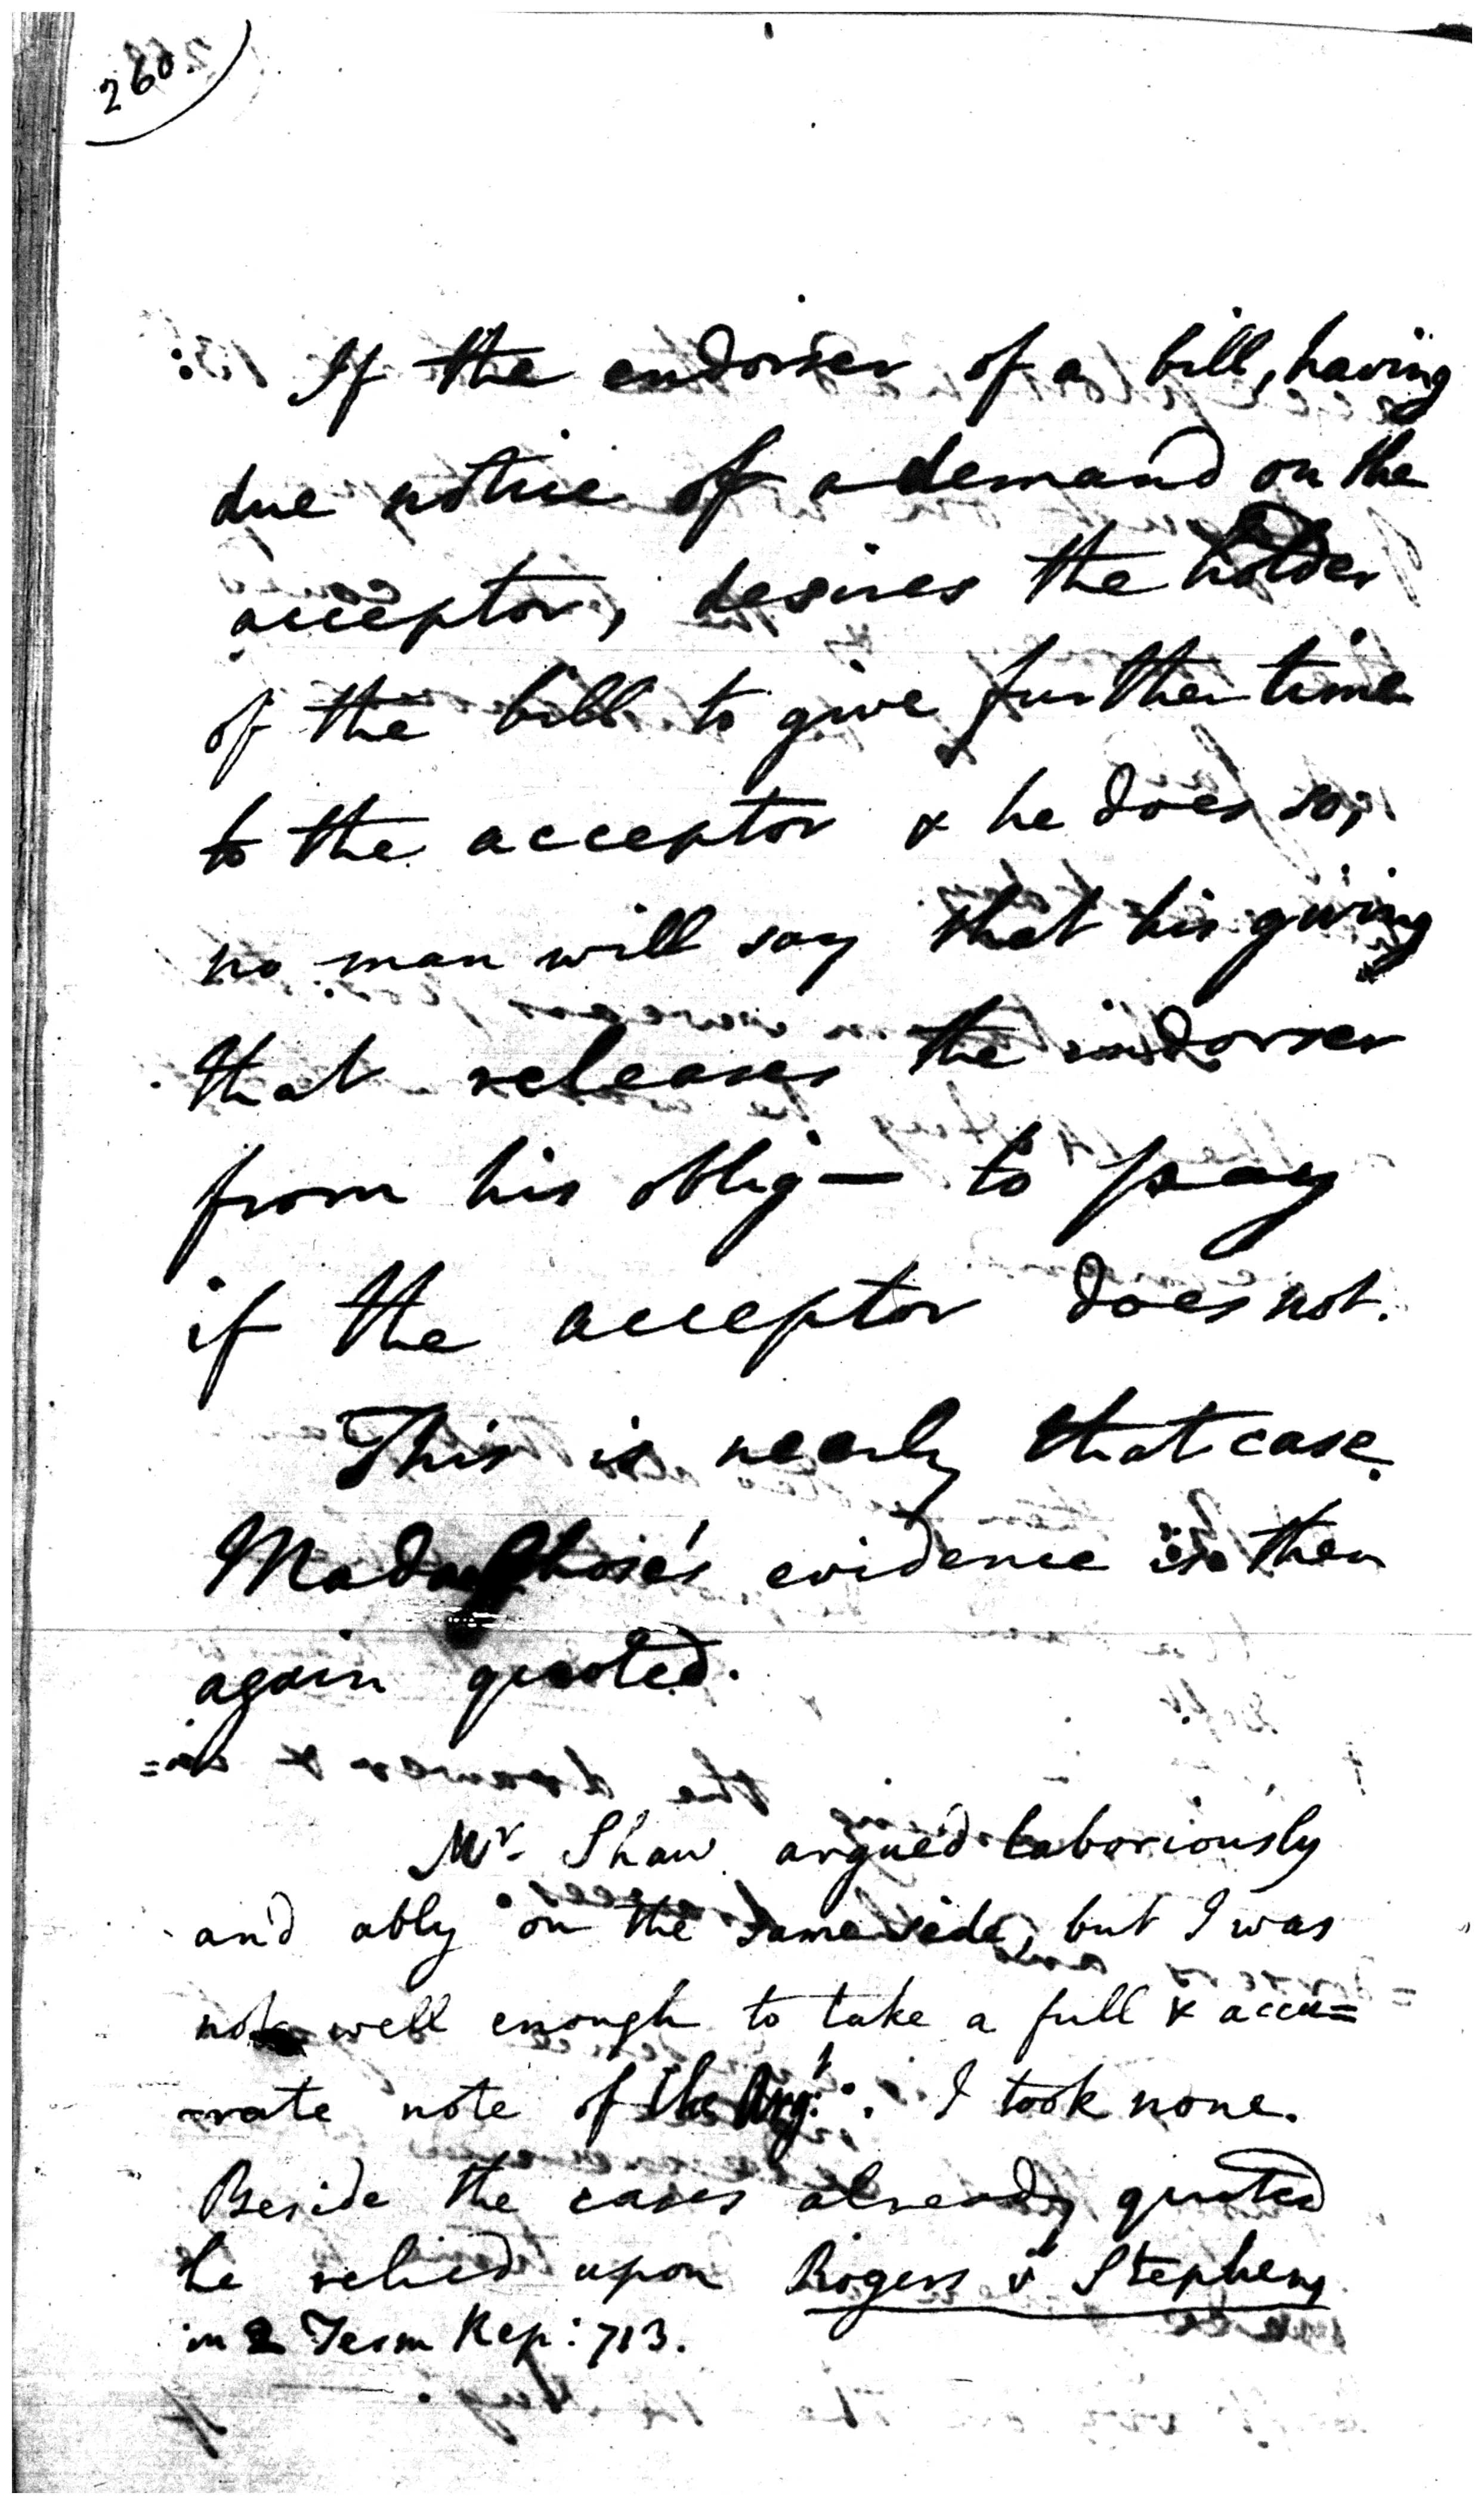 260.
If the endorser of a bill, having
due notice of a demand on the
acceptor, desires the holder
of the bill to give further time
to the acceptor & he does so;
no man will say that his giving
that releases the indorser
from his oblig— to pay
if the acceptor does not.
This is nearly that case.
evidence is then
again quoted.
Mr. Shaw argued laboriously
and ably on the same side, but I was
not well enough to take a full & accu=
-rate note of the Argt.. I took none.
Beside the cases already quoted
he relied upon Rogers v Stephens
in 2 Term Rep: 713.